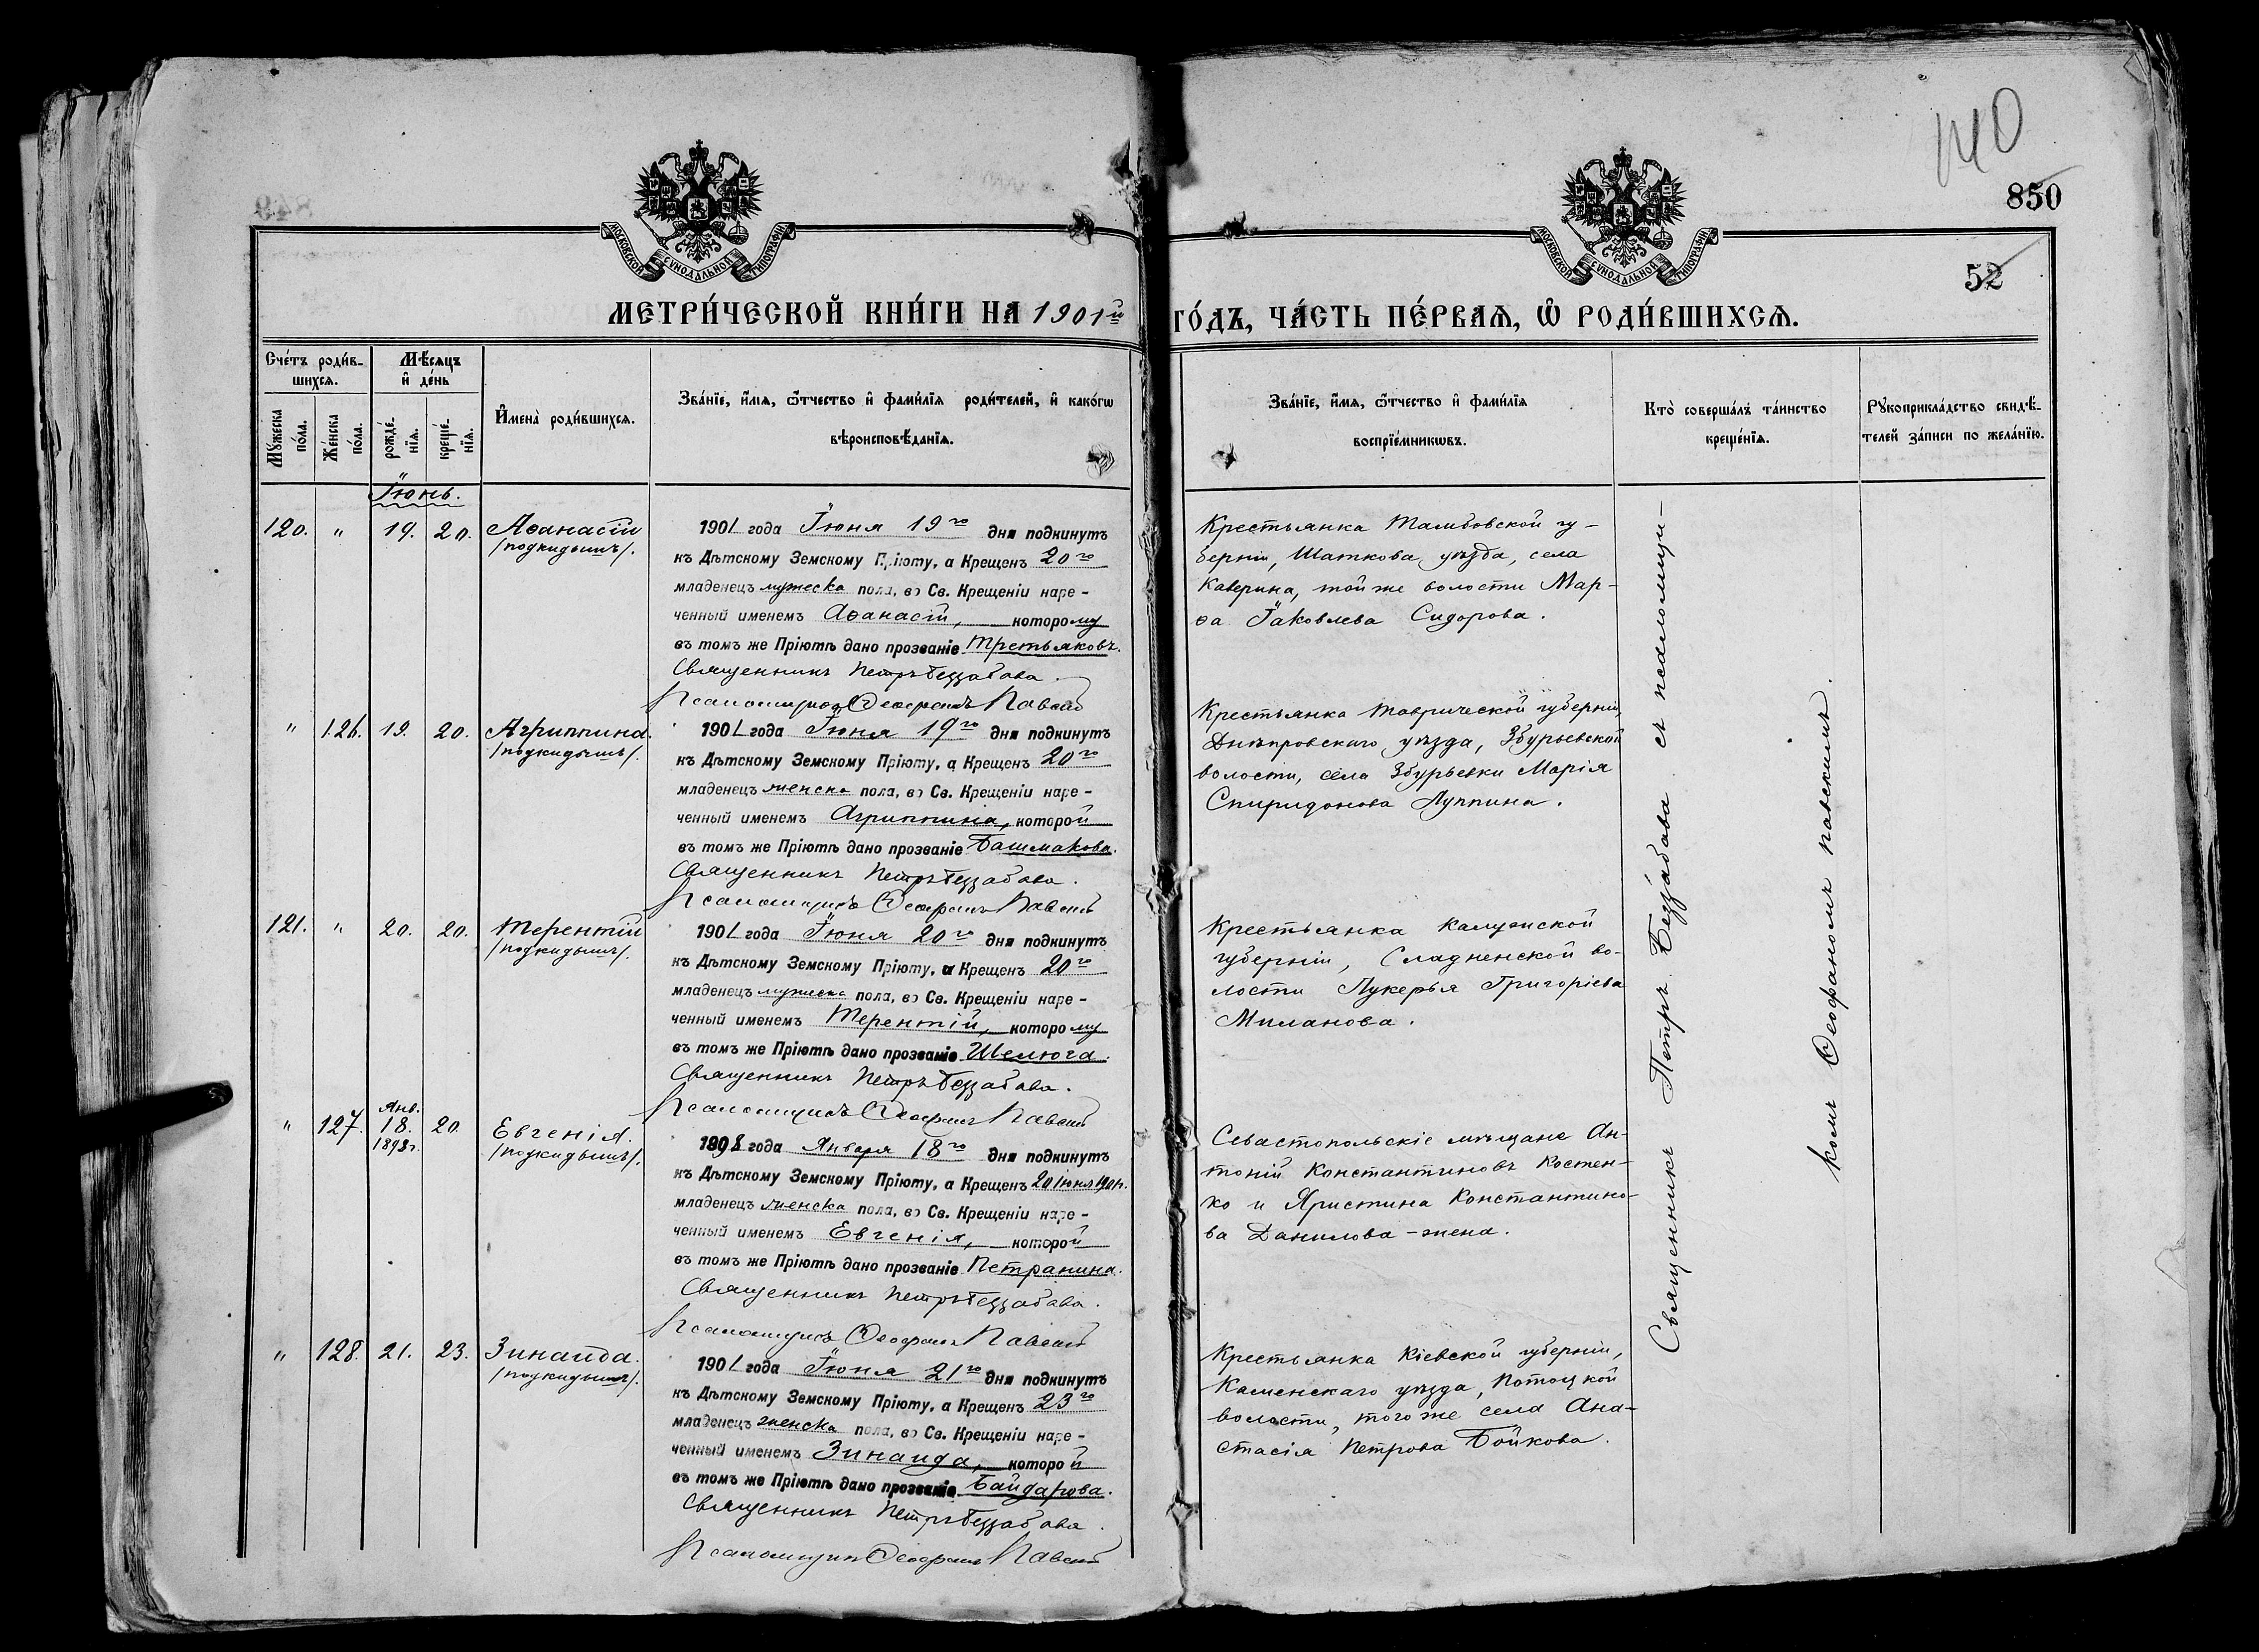 140
850
52
МОСКОВСКОЙ СѴНОДАЛЬНОЙ ТИПОГРАФІИ
МОСКОВСКОЙ СѴНОДАЛЬНОЙ ТИПОГРАФІИ
МЕТРИ́ЧЕСКОЙ КНИ́ГИ НА 1901й ГО́ДЪ, ЧА́СТЬ ПЕ́РВАѦ, Ѽ РОДИ́ВШИХСѦ.
Сче́тъ роди́в-
шихсѧ.
Мꙋ́жеска по́ла.
Же́нска по́ла.
Мѣ́сѧцъ
и҆ де́нь
рожде́-
нїѧ.
креще́-
нїѧ.
И҆мена̀ роди́вшихсѧ.
Зва́нїе, и҆́мѧ, ѻ҆́тчество и҆ фами́лїѧ роди́телей, и҆ како́гѡ
вѣроисповѣ́данїѧ.
Зва́нїе, и҆́мѧ, ѻ҆́тчество и҆ фами́лїѧ
воспрїе́мникѡвъ.
Кто̀ соверша́лъ та́инство
креще́нїѧ.
Рꙋкоприкла́дство свидѣ́-
телей за́писи по жела́нїю.
Іюнь.
120. " 19. 20. Аѳанасій
/подкидышъ/.
1901 года Іюня 19го дня подкинутъ
къ Дѣтскому Земскому Пріюту, а Крещенъ 20го
младенецъ мужеска пола, во Св. Крещеніи наре-
ченный именемъ Аѳанасій, которому
въ томъ же Пріютѣ дано прозваніе Третьяковъ.
Священникъ Петръ Беззабава.
Псаломщикъ Ѳеофанъ Павскій
Крестьянка Тамбовской гу-
берніи, Шаткова уѣзда, села
Каверина, той же волости Мар-
ѳа Іаковлева Сидорова.
" 126. 19. 20. Агриппина.
/подкидышъ/.
1901 года Іюня 19го дня подкинутъ
къ Дѣтскому Земскому Пріюту, а Крещенъ 20го
младенецъ женска пола, во Св. Крещеніи наре-
ченный именемъ Агриппина, которой
въ томъ же Пріютѣ дано прозваніе Башмакова.
Священникъ Петръ Беззабава.
Псаломщикъ Ѳеофанъ Павскій
Крестьянка Таврической губерніи,
Днѣпровскаго уѣзда, Збурьевской
волости, села Збурьевки Марія
Спиридонова Луппина.
121. " 20. 20. Терентій
/подкидышъ/.
1901 года Іюня 20го дня подкинутъ
къ Дѣтскому Земскому Пріюту, а Крещенъ 20го
младенецъ мужеска пола, во Св. Крещеніи наре-
ченный именемъ Терентій, которому
въ томъ же Пріютѣ дано прозваніе Шелюга.
Священникъ Петръ Беззабава.
Псаломщикъ Ѳеофанъ Павскій
Крестьянка Калужской
губерніи, Сладненской во-
лости Лукерья Григоріева
Миланова.
" 127. Янв. 18. 1898г. 20. Евгенія.
/подкидышъ/.
1898 года Января 18го дня подкинутъ
къ Дѣтскому Земскому Пріюту, а Крещенъ 20 іюня 1901г.
младенецъ женска пола, во Св. Крещеніи наре-
ченный именемъ Евгенія, которой
въ томъ же Пріютѣ дано прозваніе Петранина.
Священникъ Петръ Беззабава.
Псаломщикъ Ѳеофанъ Павскій
Севастопольскіе мѣщане Ан-
тоній Константиновъ Костен-
ко и Христина Константино-
ва Данилова - жена.
" 128. 21. 23. Зинаида.
/подкидышъ/.
1901 года Іюня 21го дня подкинутъ
къ Дѣтскому Земскому Пріюту, а Крещенъ 23го
младенецъ женска пола, во Св. Крещеніи наре-
ченный именемъ Зинаида, которой
въ томъ же Пріютѣ дано прозваніе Байдарова.
Священникъ Петръ Беззабава.
Псаломщикъ Ѳеофанъ Павскій
Крестьянка Кіевской губерніи,
Каменскаго уѣзда, Потоцкой
волости, того же села Ана-
стасія Петрова Бойкова.
Священникъ Петръ Беззабава съ псаломщи-
комъ Ѳеофаномъ Павскимъ.